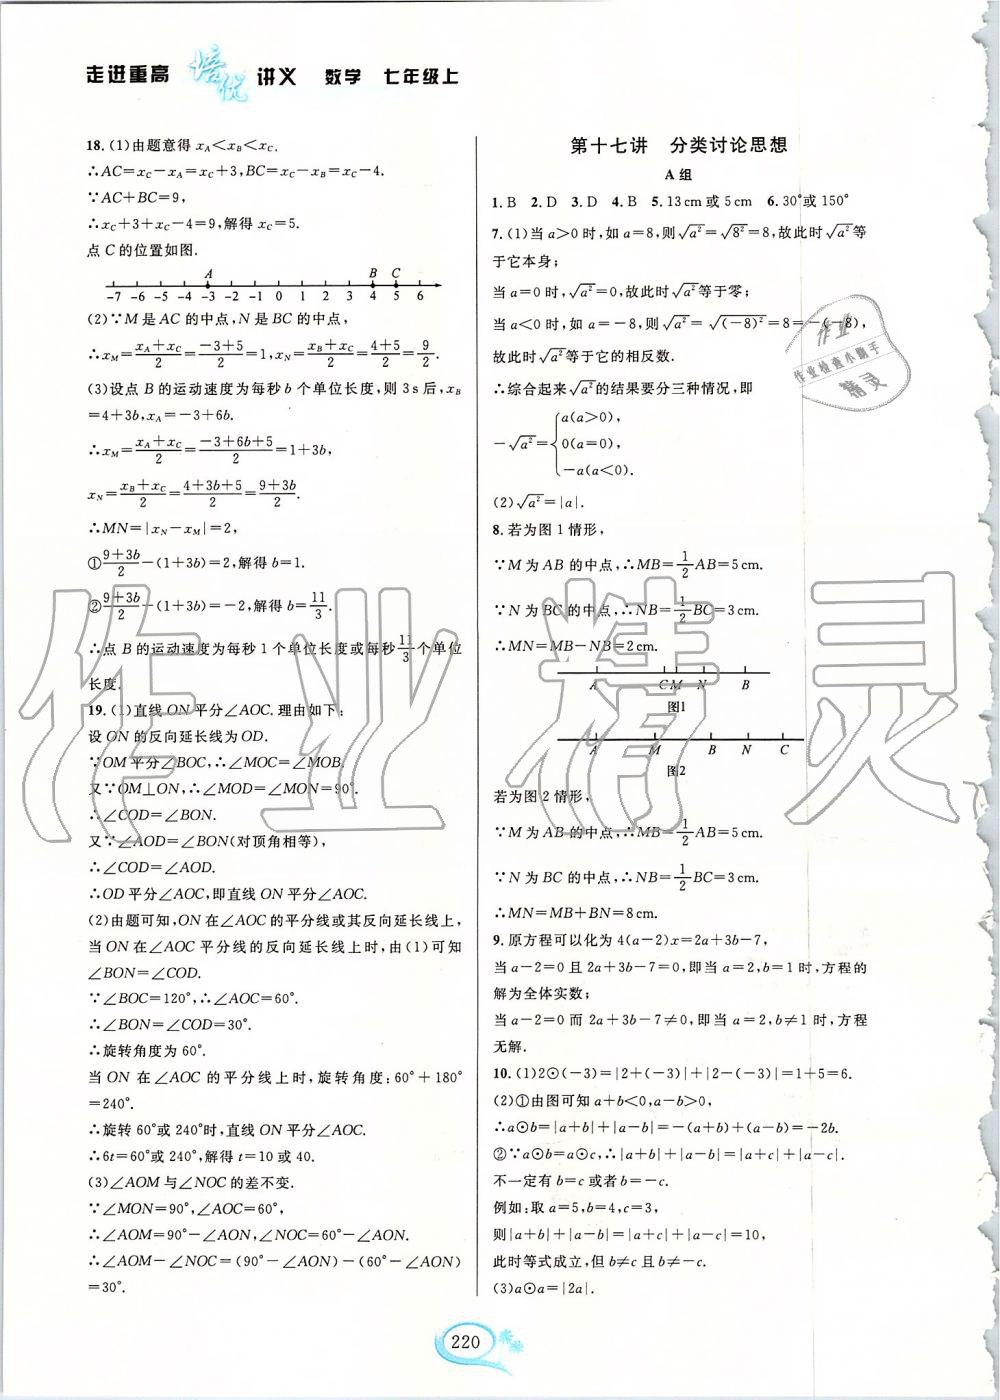 走进重高 培优 讲义 数学 七年级上
18. (1)由题意得 xA<xB<xC.
∴AC=xC-xA=xC+3,BC=xC-xB=xC-4.
∵AC+BC=9,
∴xC+3+xC-4=9,解得 xC=5.
点 C 的位置如图.
A B C
-7 -6 -5 -4 -3 -2 -1 0 1 2 3 4 5 6
(2)∵M 是 AC 的中点,N 是 BC 的中点,
∴xM=(xA+xC)/2=(-3+5)/2=1,xN=(xB+xC)/2=(4+5)/2=9/2.
(3)设点 B 的运动速度为每秒 b 个单位长度,则 3 s 后,xB
=4+3b,xA=-3+6b.
∴xM=(xA+xC)/2=(-3+6b+5)/2=1+3b,
xN=(xB+xC)/2=(4+3b+5)/2=(9+3b)/2.
∴MN=|xN-xM|=2,
①(9+3b)/2-(1+3b)=2,解得 b=1.
②(9+3b)/2-(1+3b)=-2,解得 b=11/3.
∴点 B 的运动速度为每秒 1 个单位长度或每秒 11/3 个单位
长度.
19. (1)直线 ON 平分∠AOC.理由如下:
设 ON 的反向延长线为 OD.
∵OM 平分∠BOC,∴∠MOC=∠MOB.
又∵OM⊥ON,∴∠MOD=∠MON=90°.
∴∠COD=∠BON.
又∵∠AOD=∠BON(对顶角相等),
∴∠COD=∠AOD.
∴OD 平分∠AOC,即直线 ON 平分∠AOC.
(2)由题可知,ON 在∠AOC 的平分线或其反向延长线上,
当 ON 在∠AOC 平分线的反向延长线上时,由(1)可知
∠BON=∠COD.
∵∠BOC=120°,∴∠AOC=60°.
∴∠BON=∠COD=30°.
∴旋转角度为 60°.
当 ON 在∠AOC 的平分线上时,旋转角度:60°+180°
=240°.
∴旋转 60°或 240°时,直线 ON 平分∠AOC.
∴6t=60°或 240°,解得 t=10 或 40.
(3)∠AOM 与∠NOC 的差不变.
∵∠MON=90°,∠AOC=60°,
∴∠AOM=90°-∠AON,∠NOC=60°-∠AON.
∴∠AOM-∠NOC=(90°-∠AON)-(60°-∠AON)
=30°.
第十七讲 分类讨论思想
A 组
1. B 2. D 3. D 4. B 5. 13 cm 或 5 cm 6. 30°或 150°
7. (1)当 a>0 时,如 a=8,则√a²=√8²=8,故此时√a²等
于它本身;
当 a=0 时,√a²=0,故此时√a²等于零;
当 a<0 时,如 a=-8,则√a²=√(-8)²=8=-(-8),
故此时√a²等于它的相反数.
∴综合起来√a²的结果要分三种情况,即
a(a>0),
-√a²={0(a=0),
-a(a<0).
(2)√a²=|a|.
8. 若为图 1 情形,
∵M 为 AB 的中点,∴MB=1/2AB=5 cm.
∵N 为 BC 的中点,∴NB=1/2BC=3 cm.
∴MN=MB-NB=2 cm.
A C M N B
图1
A M B N C
图2
若为图 2 情形,
∵M 为 AB 的中点,∴MB=1/2AB=5 cm.
∵N 为 BC 的中点,∴NB=1/2BC=3 cm.
∴MN=MB+BN=8 cm.
9. 原方程可以化为 4(a-2)x=2a+3b-7,
当 a-2=0 且 2a+3b-7=0,即当 a=2,b=1 时,方程的
解为全体实数;
当 a-2=0 而 2a+3b-7≠0,即当 a=2,b≠1 时,方程
无解.
10. (1)2⊙(-3)=|2+(-3)|+|2-(-3)|=1+5=6.
(2)①由图可知 a+b<0,a-b>0,
∴a⊙b=|a+b|+|a-b|=-(a+b)+(a-b)=-2b.
②∵a⊙b=a⊙c,∴|a+b|+|a-b|=|a+c|+|a-c|.
不一定有 b=c 或者 b=-c.
例如:取 a=5,b=4,c=3,
则|a+b|+|a-b|=|a+c|+|a-c|=10,
此时等式成立,但 b≠c 且 b≠-c.
(3)a⊙a=|2a|.
作业
作业检查小助手
精灵
作业精灵
220